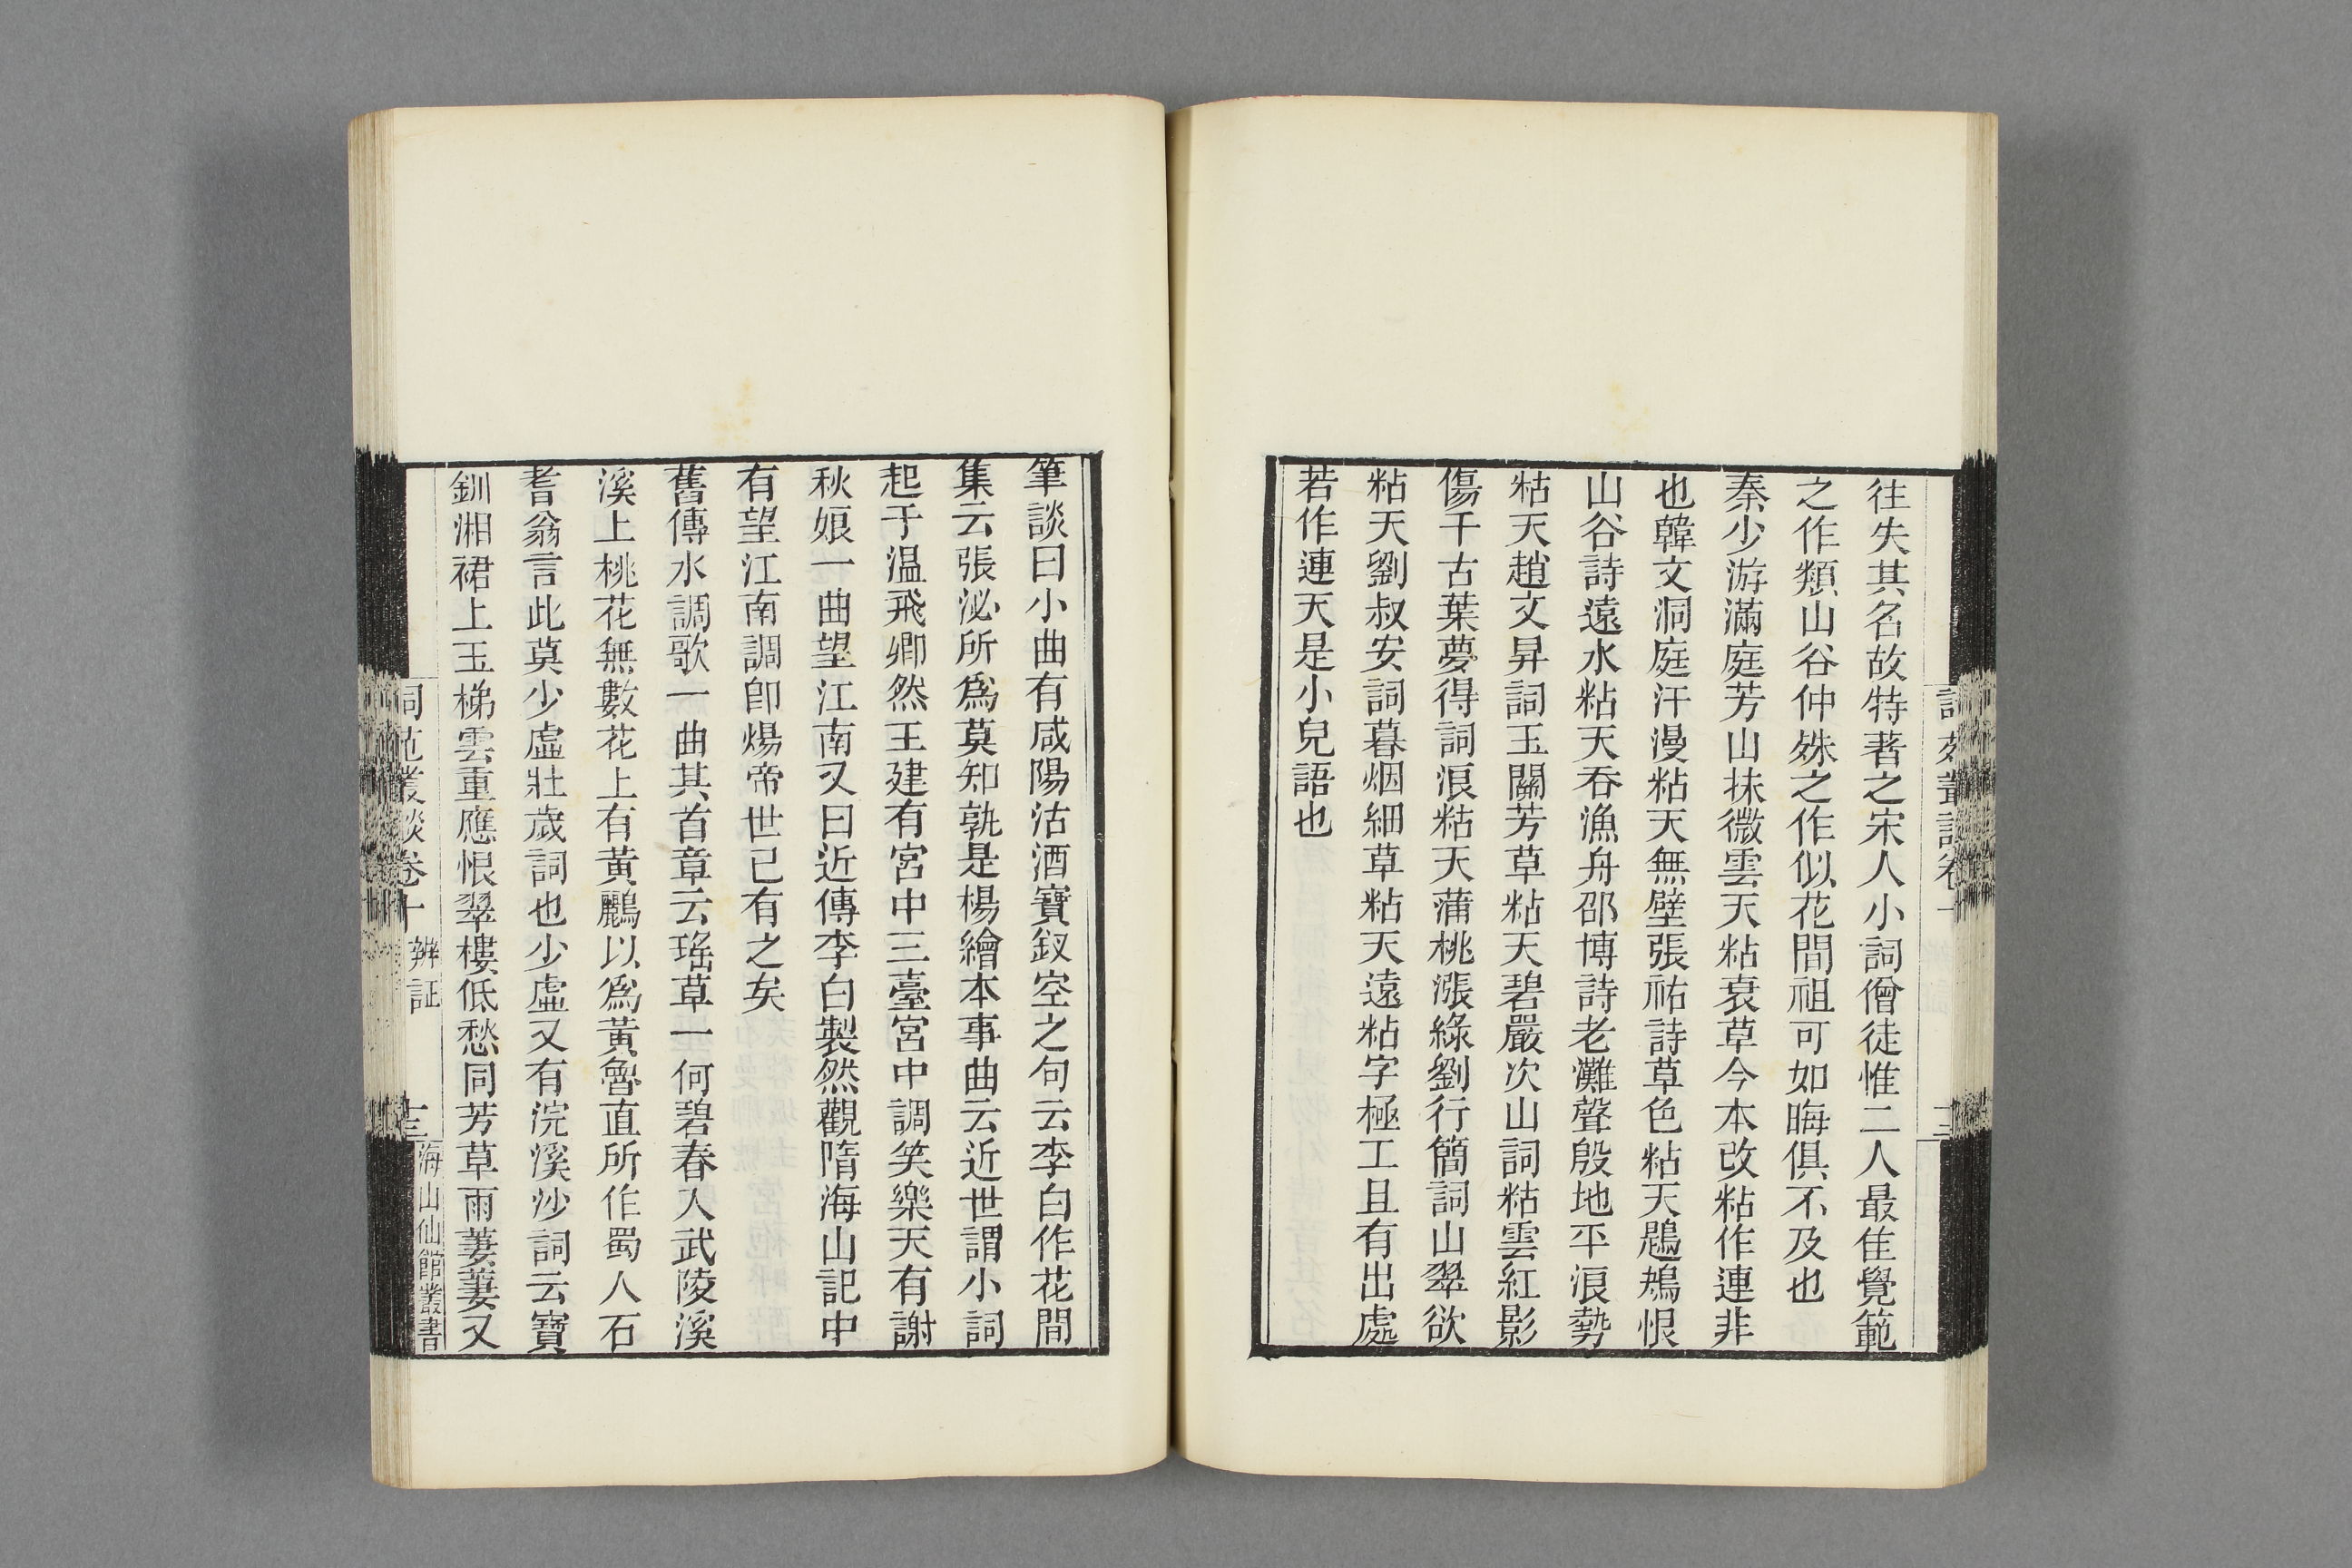 往失其名故特著之宋人小詞僧徒惟二人最隹覺範
之作類山谷仲殊之作似花間祖可如晦俱不及也
秦少游滿庭芳山抹微雲天粘衰草今本改粘作連非
也韓文洞庭汗漫粘天無壁張祐詩草色粘天鶗鴂恨
山谷詩遠水粘天吞漁舟邵博詩老灘聲殷地平浪勢
粘天趙文昇詞玉關芳草粘天碧嚴次山詞粘雲紅影
傷千古葉夢得詞浪粘天蒲桃漲綠劉行簡詞山翠欲
粘天劉叔安詞暮烟細草粘天遠粘字極工且有出處
若作連天是小兒語也
筆談曰小曲有咸陽沽酒寶釵空之句云李白作花間
集云張泌所爲莫知孰是楊繪本事曲云近世謂小詞
起于温飛卿然王建有宮中三臺宮中調笑樂天有謝
秋娘一曲望江南又曰近傳李白製然觀隋海山記中
有望江南調卽煬帝世已有之矣
舊傳水調歌一曲其首章云瑤草一何碧春入武陵溪
溪上桃花無數花上有黃鸝以爲黃魯直所作蜀人石
耆翁言此莫少虛壯歲詞也少虛又有浣溪沙詞云寶
釧湘裙上玉梯雲重應恨翠樓低愁同芳草雨萋萋又
詞苑叢談卷十 辨証 十三 海山仙館叢書